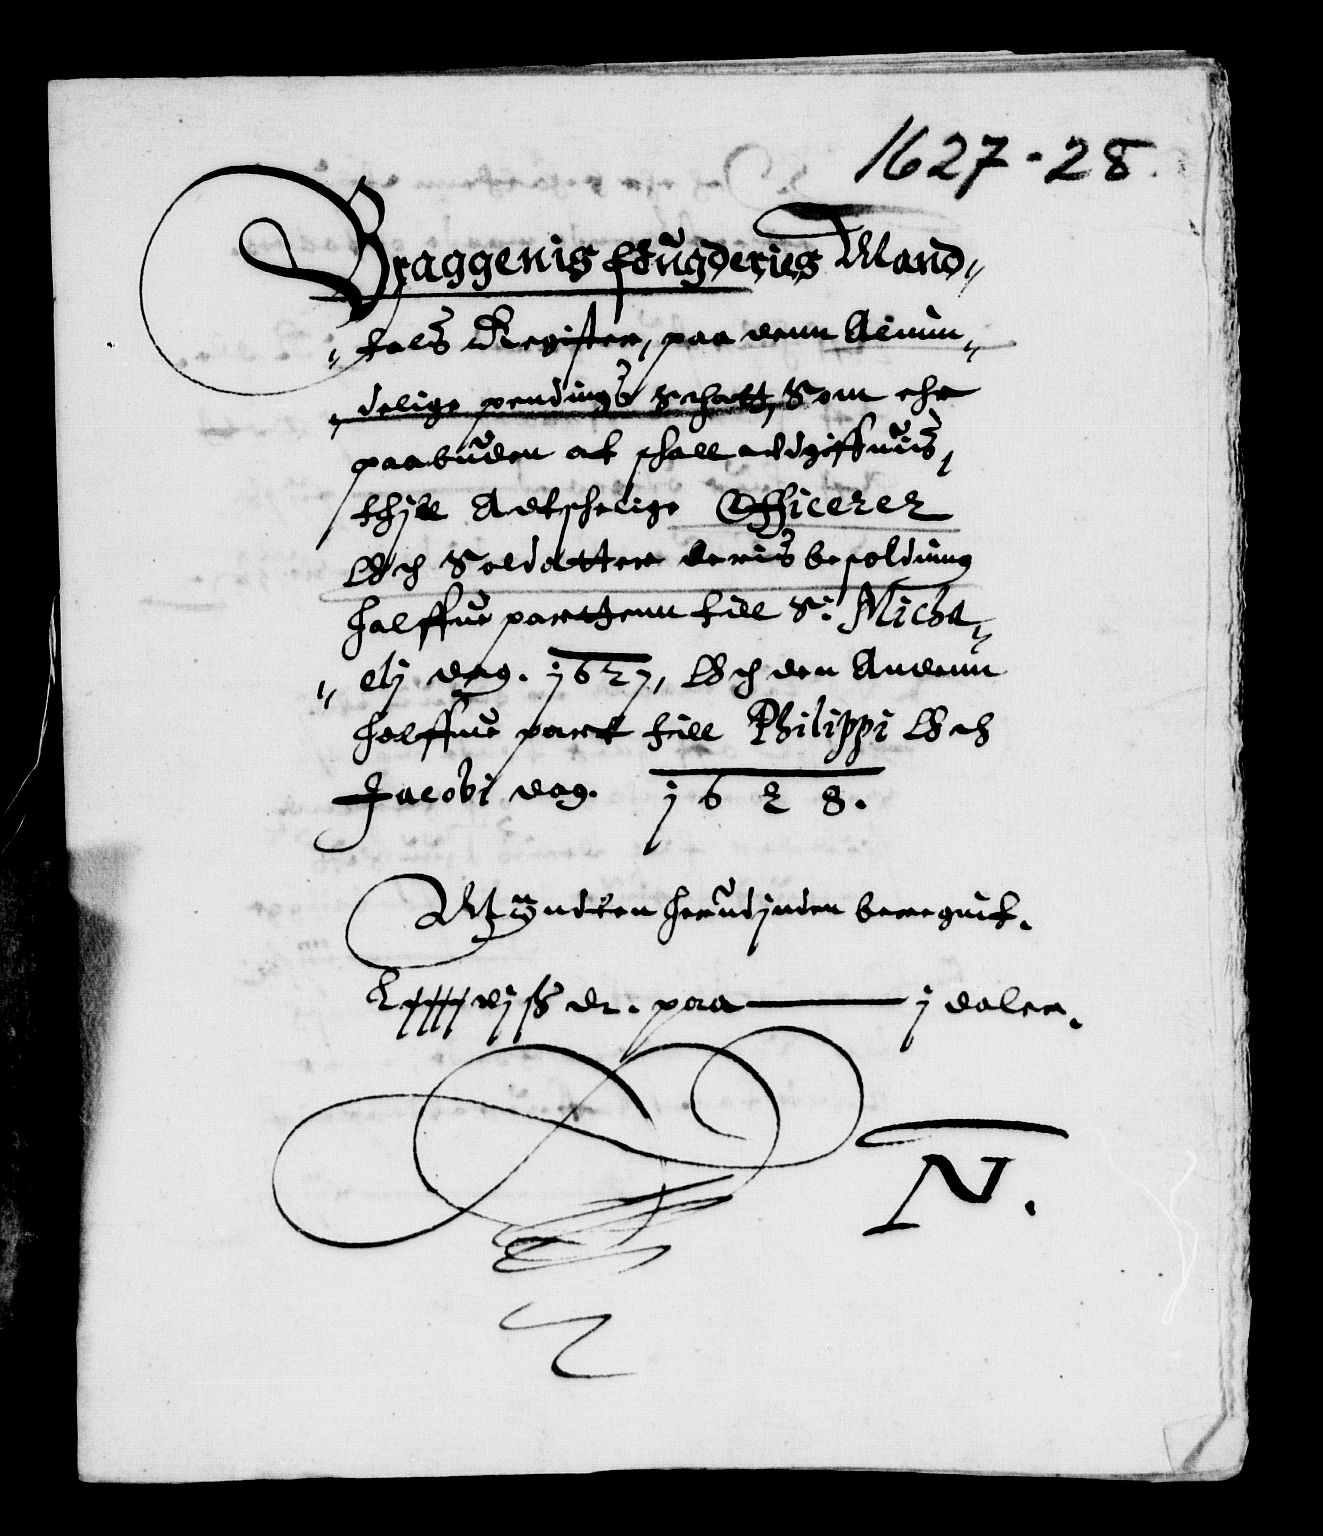 1627-28.
Braggenis fougderies Mand,,
,, tals Register, paa denn Almin,,
,, delige pendings Schatt, Som ehr
paabuden at schall udgiffuis,
thill Adtschelige Officerer
Och Soldatter deris besoldning
halffue parttenn till S: Micha,,
,, elj dag. 1627, Och den Andenn
halffue part till Philippi Och
Jacobi dag. 1628.
Myndten herudjnden beregnit.
dr. paa — j daler.
N.